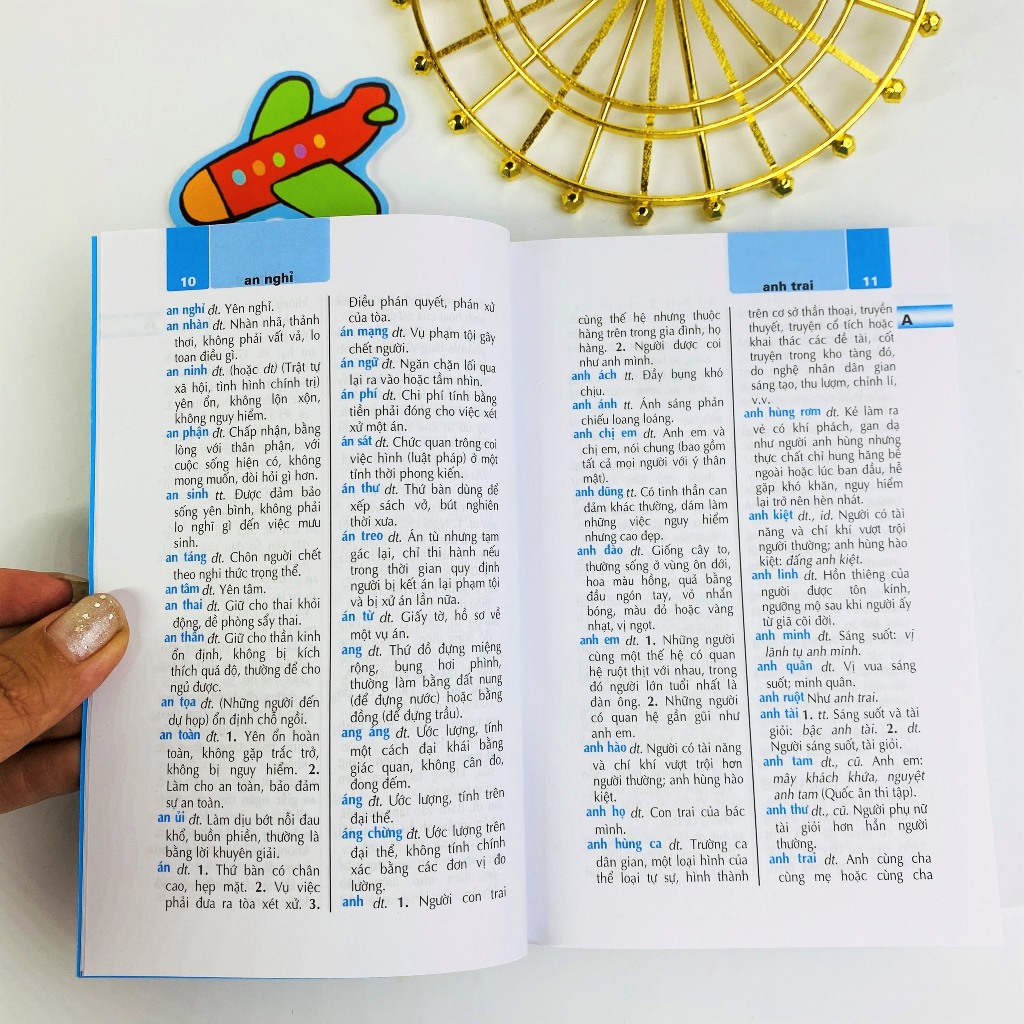 10
an nghỉ
an nghỉ đt. Yên nghỉ.
an nhàn đt. Nhàn nhã, thảnh
thơi, không phải vất vả, lo
toan điều gì.
an ninh đt. (hoặc dt) (Trật tự
xã hội, tình hình chính trị)
yên ổn, không lộn xộn,
không nguy hiểm.
an phận đt. Chấp nhận, bằng
lòng với thân phận, với
cuộc sống hiện có, không
mong muốn, đòi hỏi gì hơn.
an sinh tt. Được đảm bảo
sống yên bình, không phải
lo nghĩ gì đến việc mưu
sinh.
an táng đt. Chôn người chết
theo nghi thức trọng thể.
an tâm đt. Yên tâm.
an thai đt. Giữ cho thai khỏi
động, đề phòng sẩy thai.
an thần đt. Giữ cho thần kinh
ổn định, không bị kích
thích quá độ, thường để cho
ngủ được.
an tọa đt. (Những người đến
dự họp) ổn định chỗ ngồi.
an toàn đt. 1. Yên ổn hoàn
toàn, không gặp trắc trở,
không bị nguy hiểm. 2.
Làm cho an toàn, bảo đảm
sự an toàn.
an ủi đt. Làm dịu bớt nỗi đau
khổ, buồn phiền, thường là
bằng lời khuyên giải.
án dt. 1. Thứ bàn có chân
cao, hẹp mặt. 2. Vụ việc
phải đưa ra tòa xét xử. 3.
Điều phán quyết, phán xử
của tòa.
án mạng dt. Vụ phạm tội gây
chết người.
án ngữ đt. Ngăn chặn lối qua
lại ra vào hoặc tầm nhìn.
án phí dt. Chi phí tính bằng
tiền phải đóng cho việc xét
xử một án.
án sát dt. Chức quan trông coi
việc hình (luật pháp) ở một
tỉnh thời phong kiến.
án thư dt. Thứ bàn dùng để
xếp sách vở, bút nghiên
thời xưa.
án treo dt. Án tù nhưng tạm
gác lại, chỉ thi hành nếu
trong thời gian quy định
người bị kết án lại phạm tội
và bị xử án lần nữa.
án từ dt. Giấy tờ, hồ sơ về
một vụ án.
ang dt. Thứ đồ đựng miệng
rộng, bụng hơi phình,
thường làm bằng đất nung
(để đựng nước) hoặc bằng
đồng (để đựng trầu).
ang áng đt. Ước lượng, tính
một cách đại khái bằng
giác quan, không cân đo,
đong đếm.
áng đt. Ước lượng, tính trên
đại thể.
áng chừng đt. Ước lượng trên
đại thể, không tính chính
xác bằng các đơn vị đo
lường.
anh dt. 1. Người con trai
anh trai
11
A
cùng thế hệ nhưng thuộc
hàng trên trong gia đình, họ
hàng. 2. Người được coi
như anh mình.
anh ách tt. Đầy bụng khó
chịu.
anh ánh tt. Ánh sáng phản
chiếu loang loáng.
anh chị em dt. Anh em và
chị em, nói chung (bao gồm
tất cả mọi người với ý thân
mật).
anh dũng tt. Có tinh thần can
đảm khác thường, dám làm
những việc nguy hiểm
nhưng cao đẹp.
anh đào dt. Giống cây to,
thường sống ở vùng ôn đới,
hoa màu hồng, quả bằng
đầu ngón tay, vỏ nhẵn
bóng, màu đỏ hoặc vàng
nhạt, vị ngọt.
anh em dt. 1. Những người
cùng một thế hệ có quan
hệ ruột thịt với nhau, trong
đó người lớn tuổi nhất là
đàn ông. 2. Những người
có quan hệ gần gũi như
anh em.
anh hào dt. Người có tài năng
và chí khí vượt trội hơn
người thường; anh hùng hào
kiệt.
anh họ dt. Con trai của bác
mình.
anh hùng ca dt. Trường ca
dân gian, một loại hình của
thể loại tự sự, hình thành
trên cơ sở thần thoại, truyền
thuyết, truyện cổ tích hoặc
khai thác các đề tài, cốt
truyện trong kho tàng đó,
do nghệ nhân dân gian
sáng tạo, thu lượm, chỉnh lí,
v.v.
anh hùng rơm dt. Kẻ làm ra
vẻ có khí phách, gan dạ
như người anh hùng nhưng
thực chất chỉ hung hăng bề
ngoài hoặc lúc ban đầu, hễ
gặp khó khăn, nguy hiểm
lại trở nên hèn nhát.
anh kiệt dt., id. Người có tài
năng và chí khí vượt trội
người thường; anh hùng hào
kiệt: đấng anh kiệt.
anh linh dt. Hồn thiêng của
người được tôn kính,
ngưỡng mộ sau khi người ấy
từ giã cõi đời.
anh minh dt. Sáng suốt: vị
lãnh tụ anh minh.
anh quân dt. Vị vua sáng
suốt; minh quân.
anh ruột Như anh trai.
anh tài 1. tt. Sáng suốt và tài
giỏi: bậc anh tài. 2. dt.
Người sáng suốt, tài giỏi.
anh tam dt., cũ. Anh em:
mây khách khứa, nguyệt
anh tam (Quốc âm thi tập).
anh thư dt., cũ. Người phụ nữ
tài giỏi hơn hẳn người
thường.
anh trai dt. Anh cùng cha
cùng mẹ hoặc cùng cha